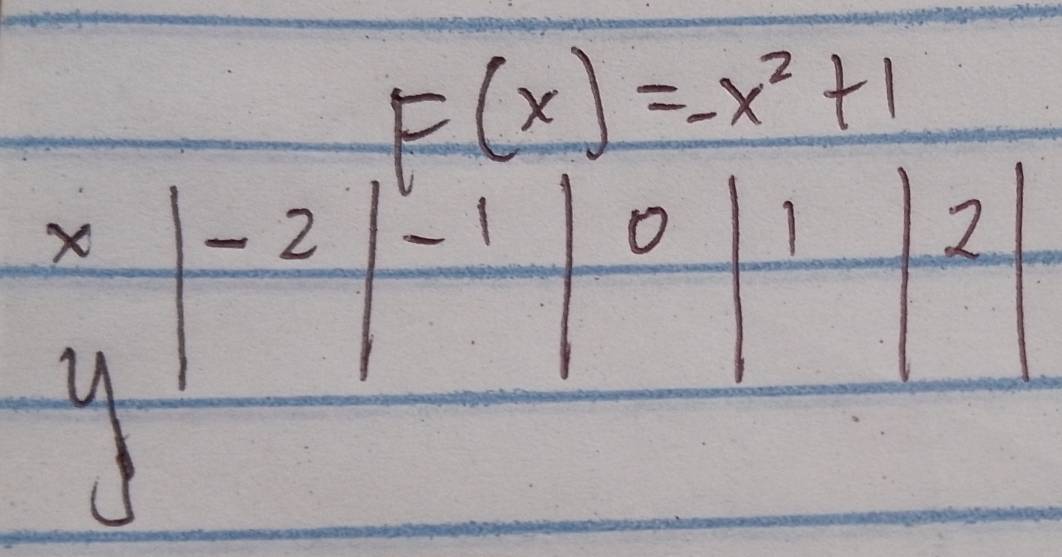 F(x) = -x² + 1
x | -2 | -1 | 0 | 1 | 2 |
y | | | | | |